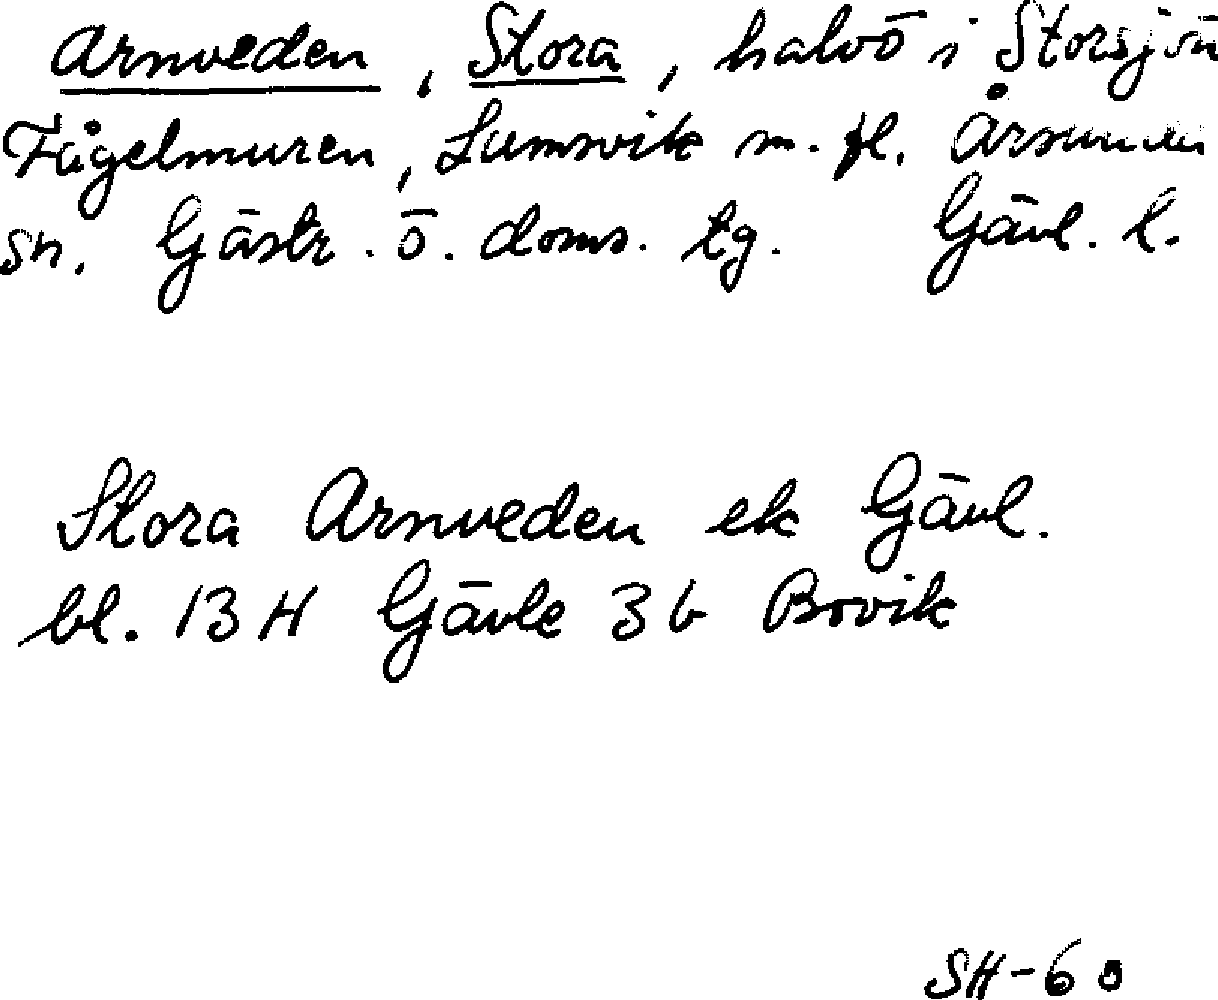 Arnveden, Stora, halvö i Storsjön
Fågelmuren, Lumsvik m. fl. Årsunda
sn. Gästr. ö. doms. tg. Gävl. l.
Stora Arnveden ek Gävl.
bl. 13 H Gävle 3 b Bovik
SH-60